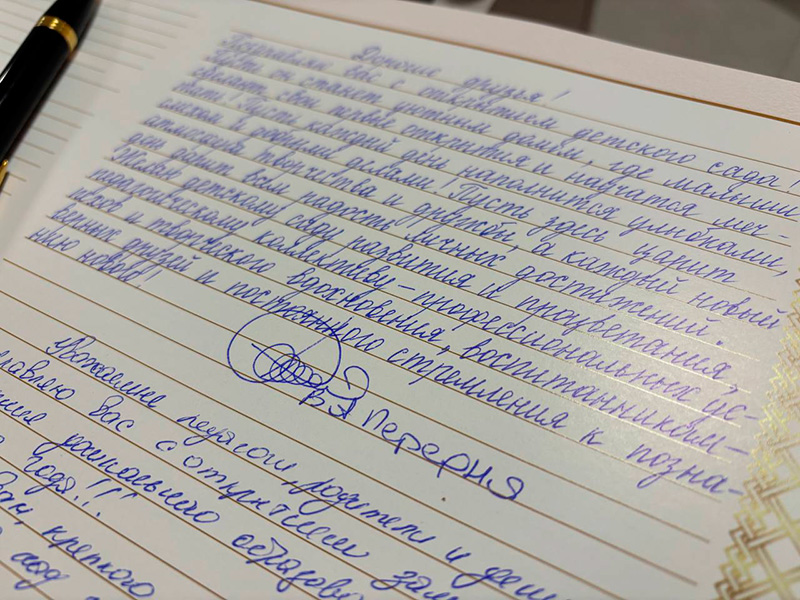 Дорогие друзья!
Поздравляем вас с открытием детского сада!
Пусть он станет уютным домом, где малыши
сделают свои первые открытия и научатся меч-
тать! Пусть каждый день наполнится улыбками,
смехом и добрыми делами! Пусть здесь царит
атмосфера творчества и дружбы, а каждый новый
день дарит вам радость личных достижений.
Желаем детскому саду развития и процветания,
педагогическому коллективу – профессиональных ус-
пехов и творческого вдохновения, воспитанникам –
верных друзей и постоянного стремления к позна-
нию нового!
В Я Переродня
Уважаемые педагоги, родители и дети
вас с открытием
дошкольного